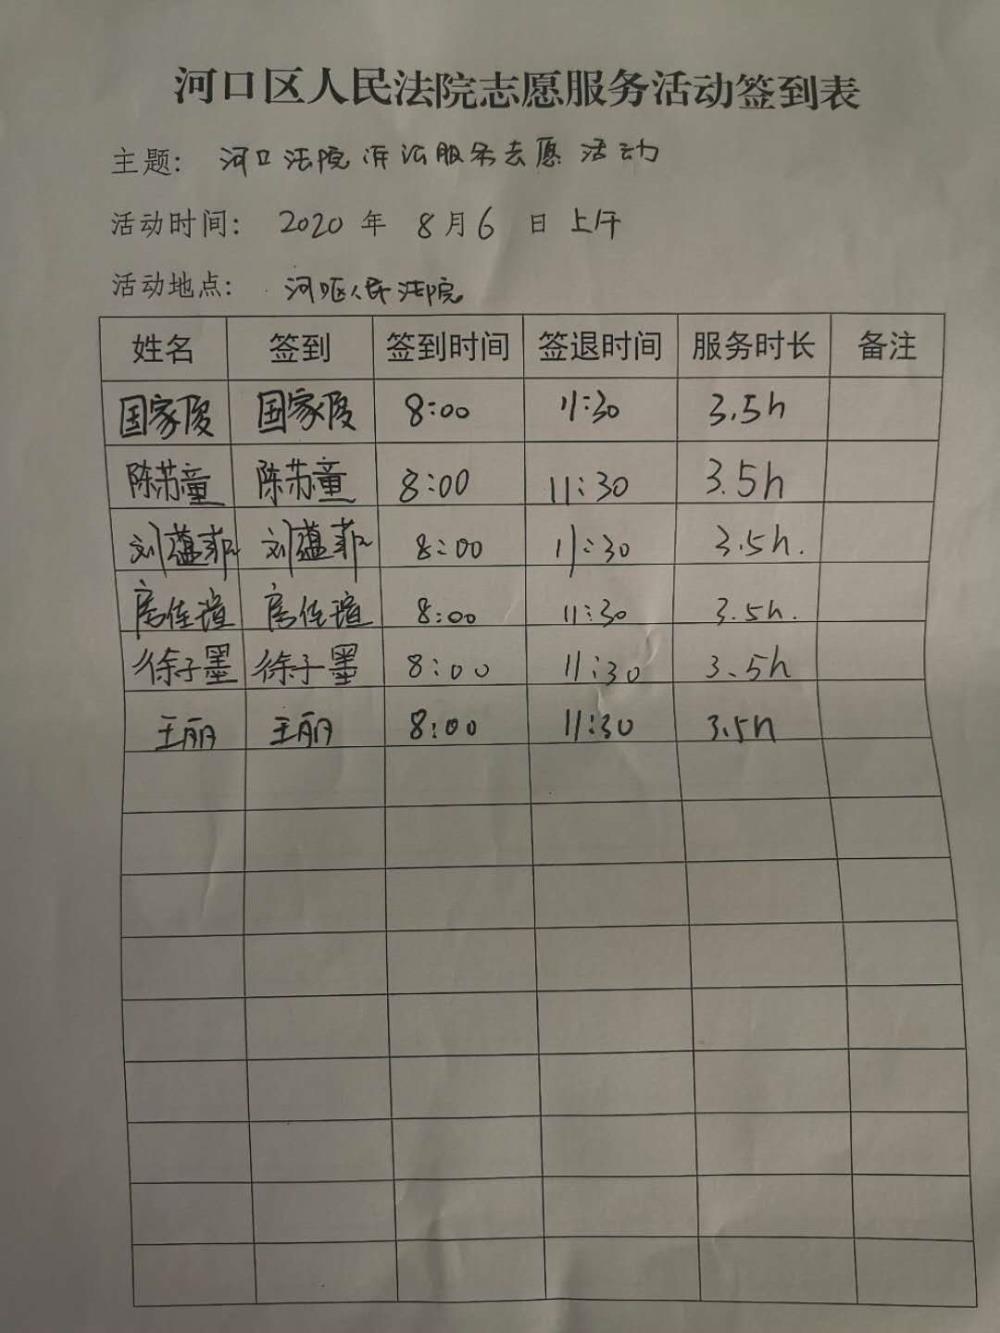 河口区人民法院志愿服务活动签到表
主题: 河口法院诉讼服务志愿活动
活动时间: 2020 年 8月6 日 上午
活动地点: 河口区人民法院
姓名 签到 签到时间 签退时间 服务时长 备注
国家俊 国家俊 8:00 11:30 3.5h
陈苏童 陈苏童 8:00 11:30 3.5h
刘蕴菲 刘蕴菲 8:00 11:30 3.5h.
房佳瑄 房佳瑄 8:00 11:30 3.5h.
徐子墨 徐子墨 8:00 11:30 3.5h
王丽 王丽 8:00 11:30 3.5h